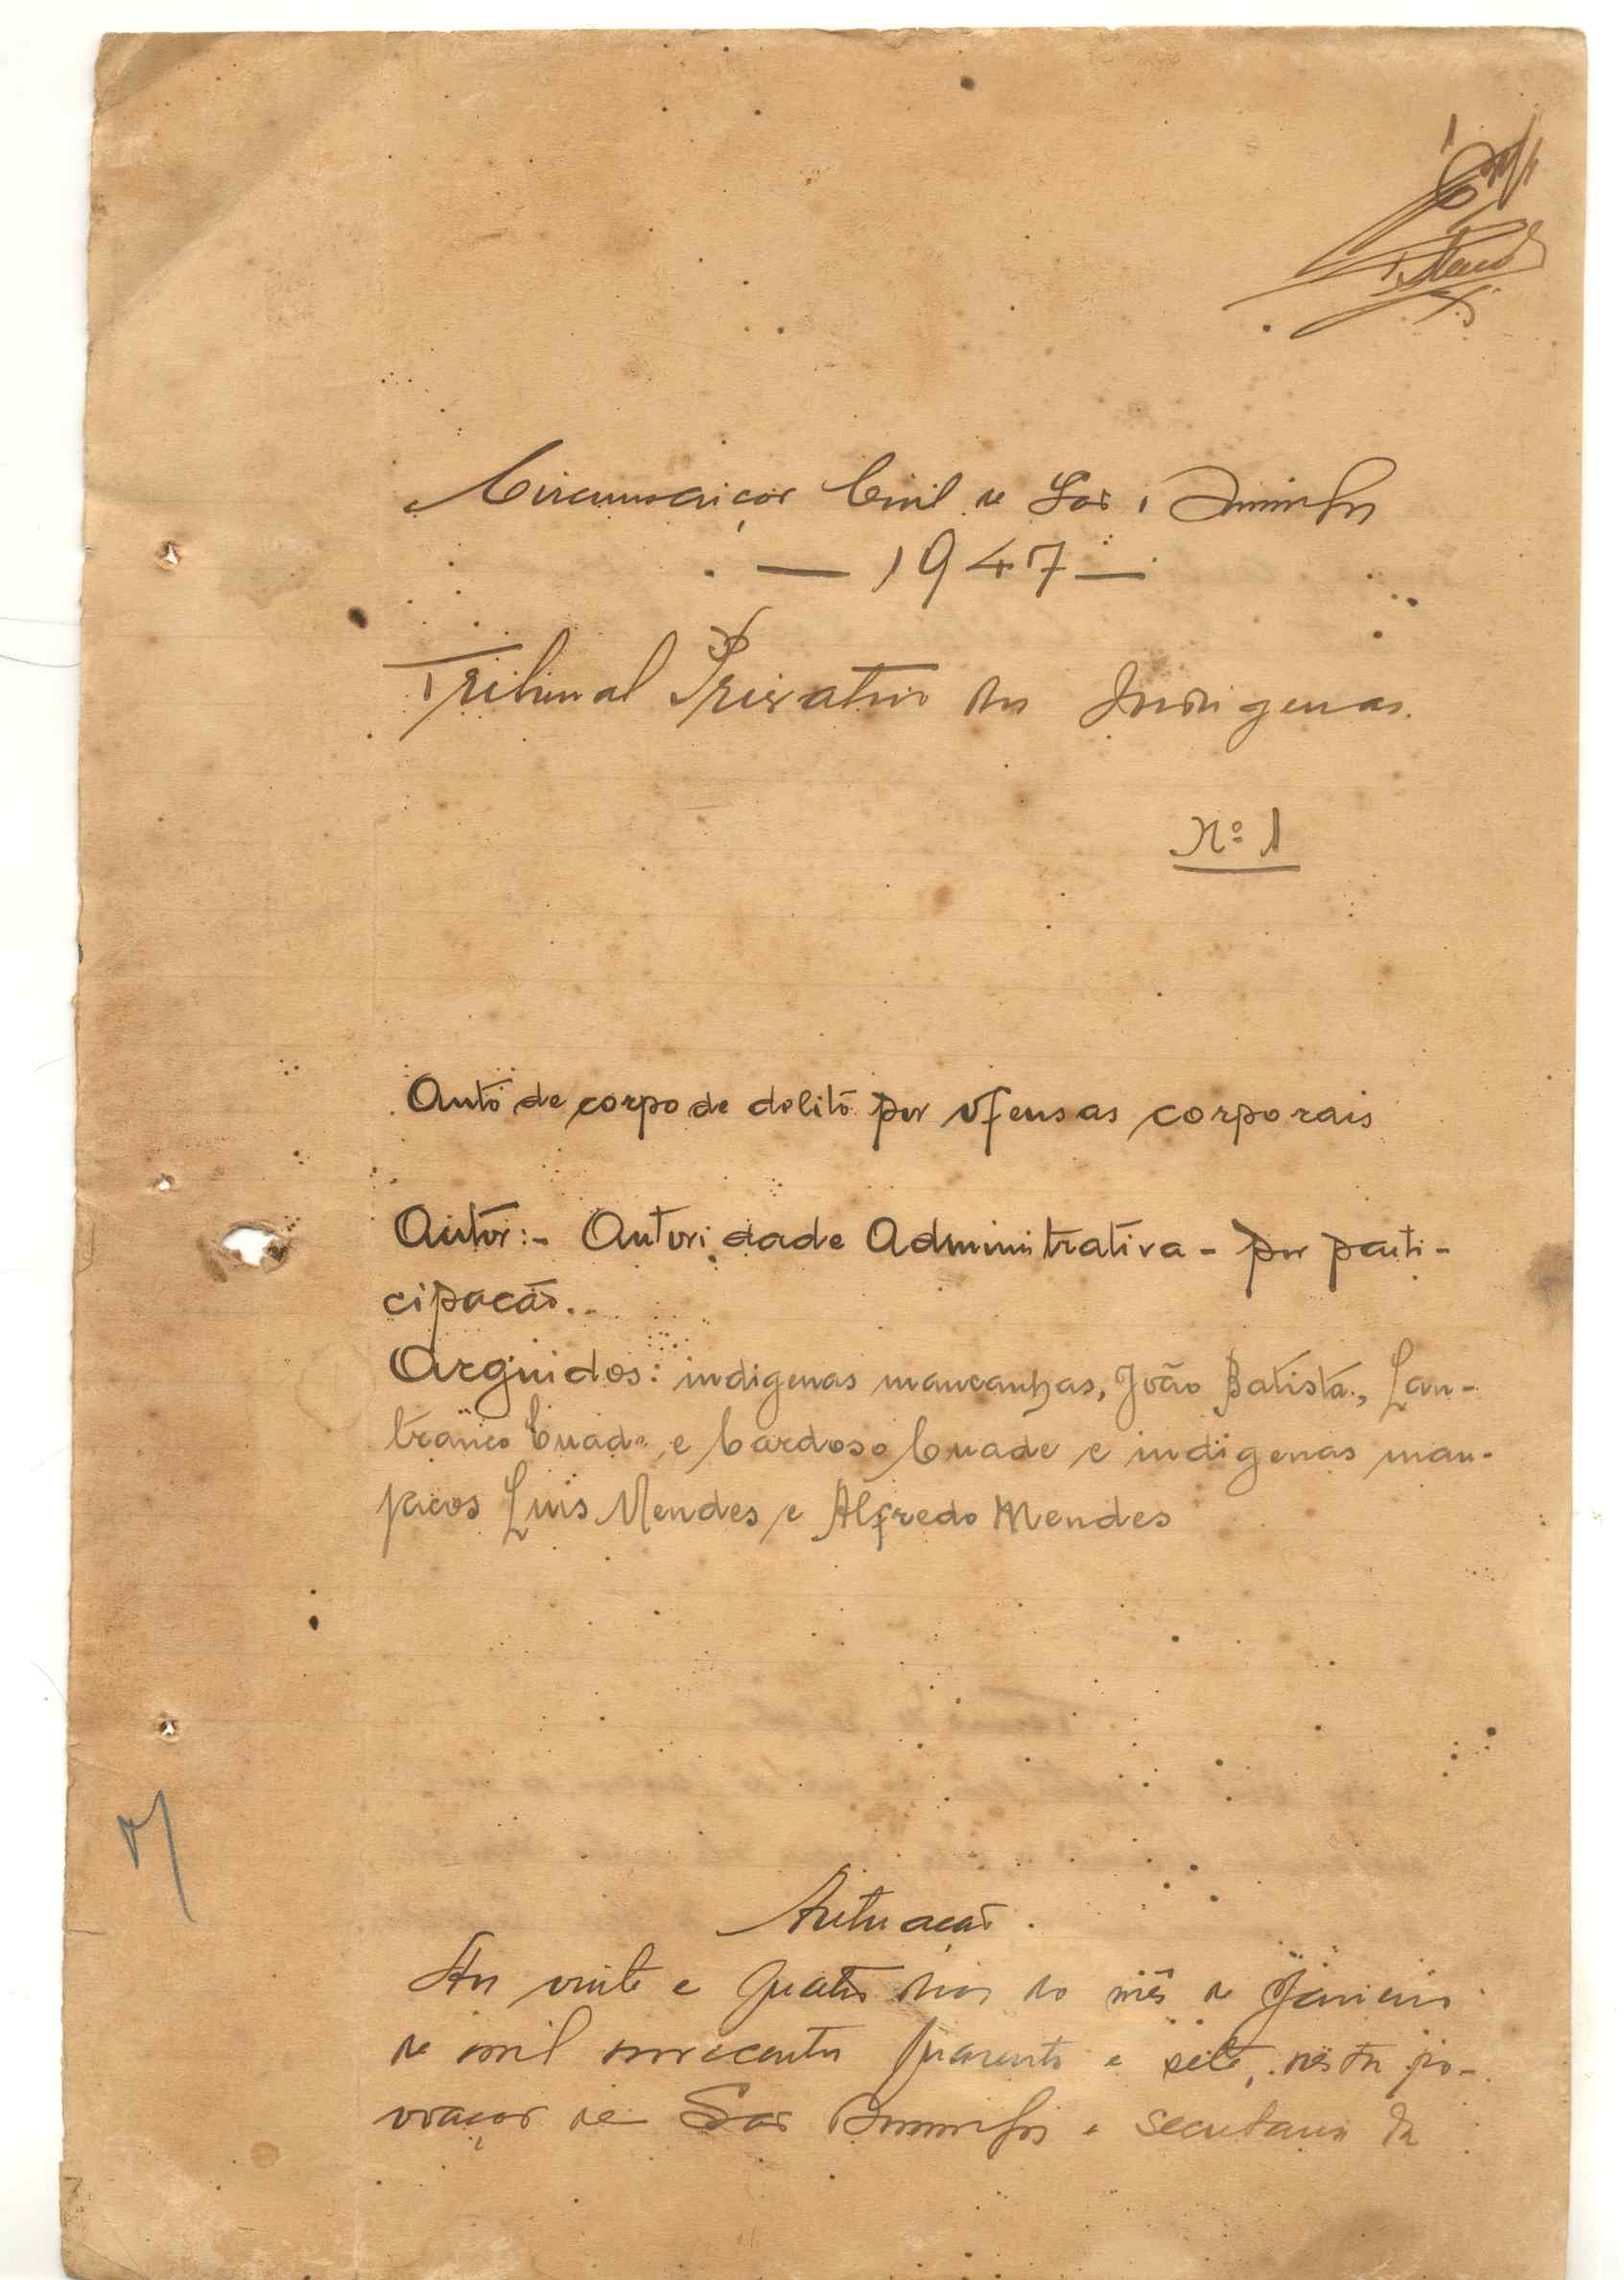 Circunscrição Civil de São Domingos
— 1947 —
Tribunal Privativo dos Indigenas.
Nº 1
Auto de corpo de delito por ofensas corporais
Autor:- Autoridade Administrativa - por parti-
cipação.-
Arguidos: indigenas mancanhas, João Batista, Lan-
tranco Cuade, e Cardoso Cuade e indigenas man-
jacos Luis Mendes e Alfredo Mendes
Autuação.
Aos vinte e quatro dias do mês de Janeiro
de mil novecentos quarenta e sete, nesta po-
voação de São Domingos e secretaria da